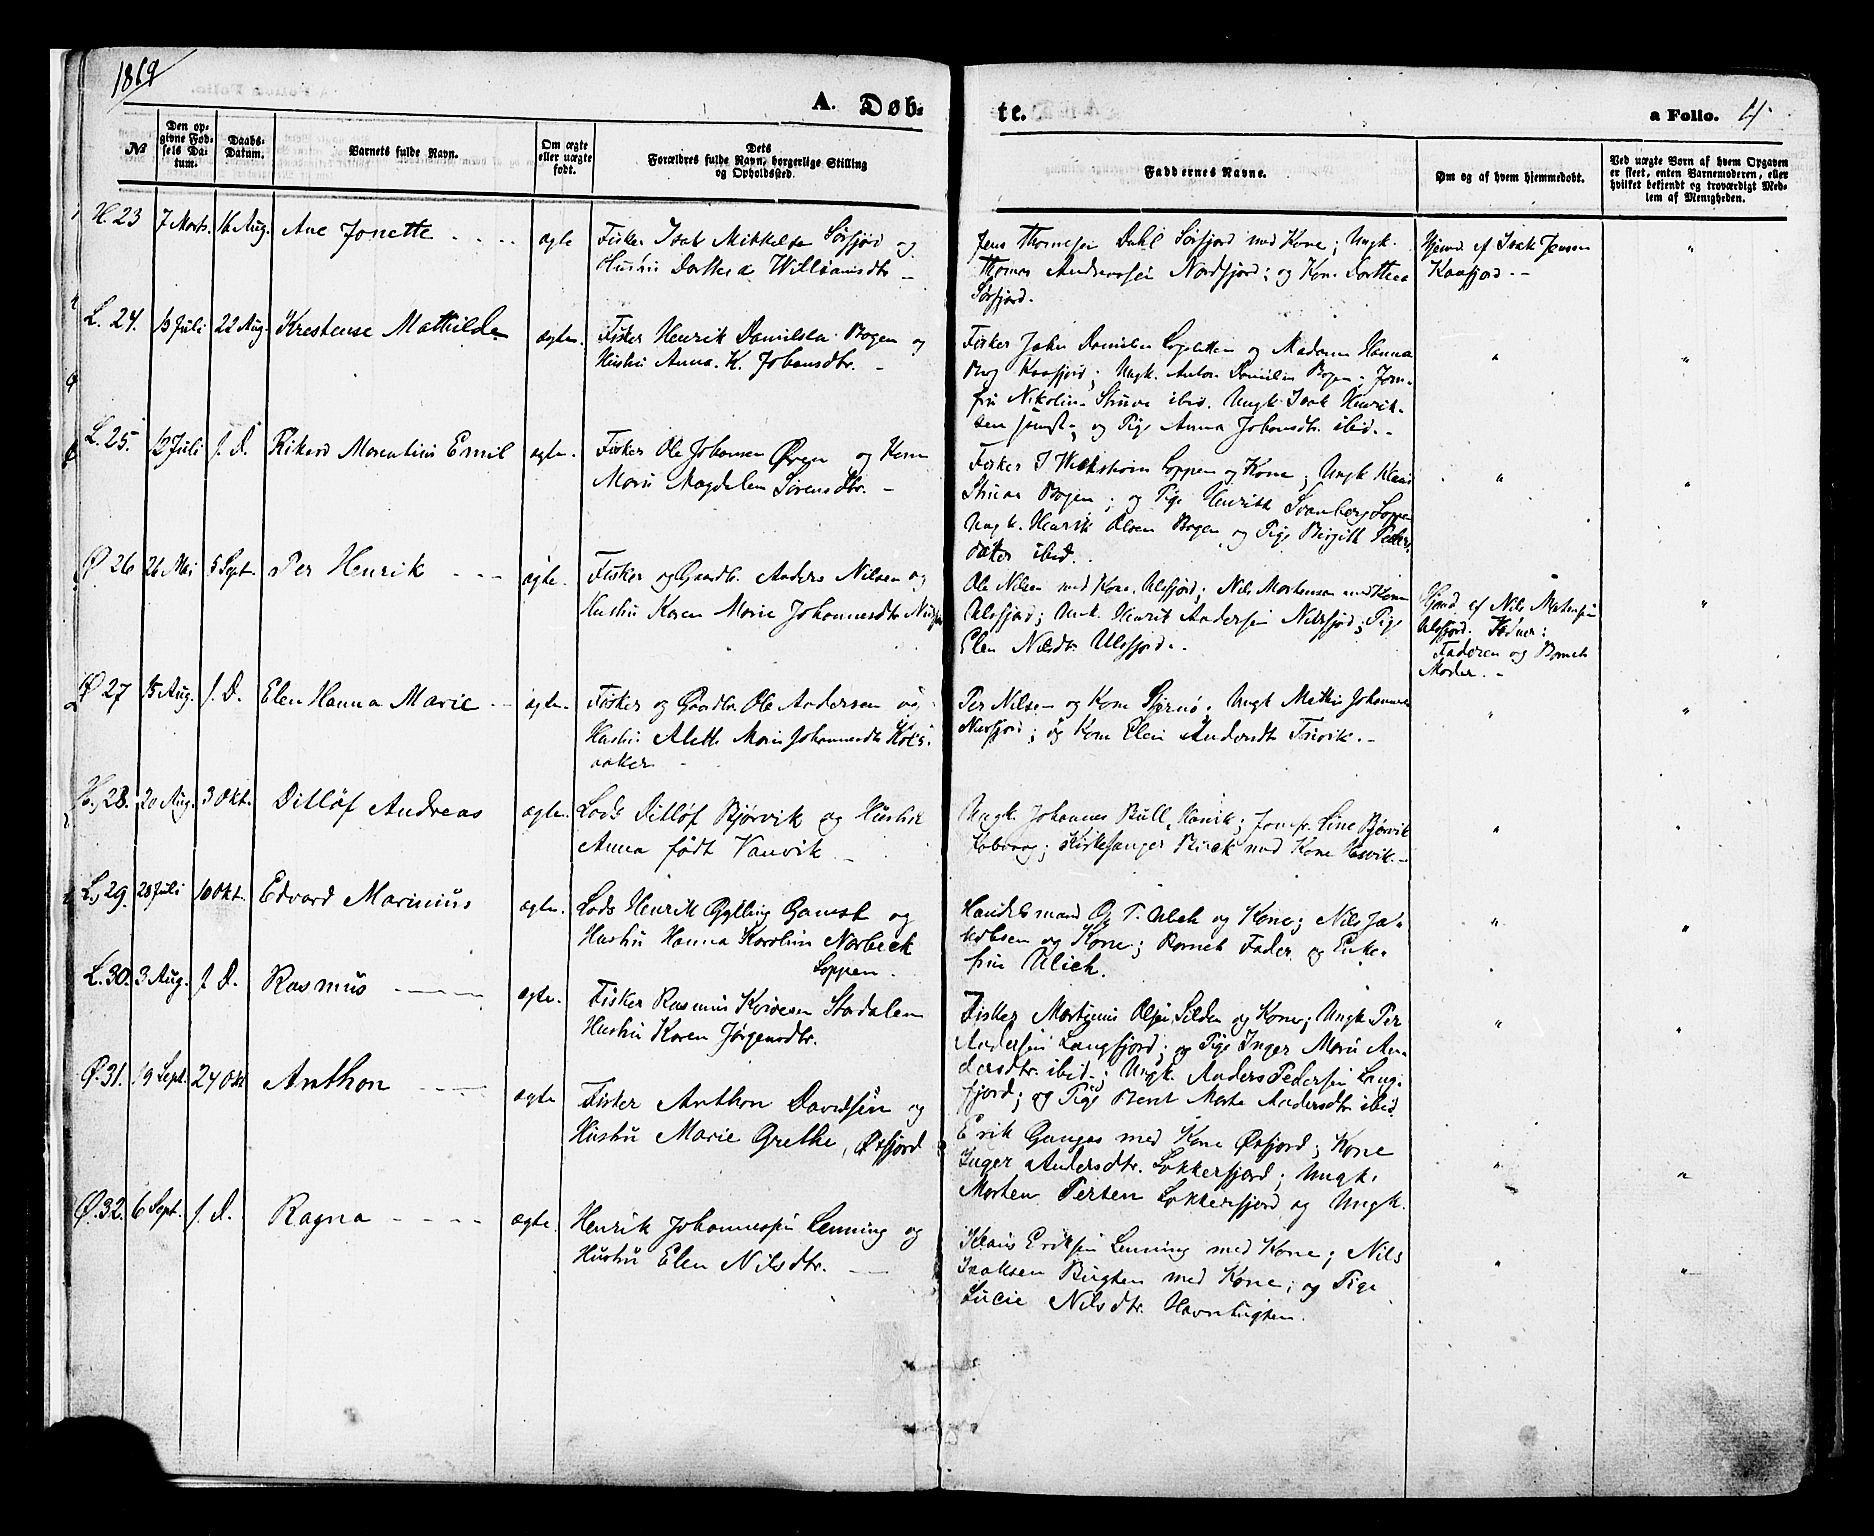 1869
A. Døb-
te.
a Folio. 4.
№
Den op-
givne Fød-
sels Da-
tum.
Daabs-
Datum.
Barnets fulde Navn.
Om ægte
eller uægte
født.
Dets
Forældres fulde Navn, borgerlige Stilling
og Opholdssted.
Faddernes Navne.
Om og af hvem hjemmedøbt.
Ved uægte Børn af hvem Opgaven
er skeet, enten Barnemoderen, eller
hvilket bekjendt og troværdigt Med-
lem af Menigheden.
H. 23 7 Marts. 16 Aug. Ane Jonette ægte
Fisker Isak Mikkelsen Sørfjord og
Hustru Dorthea Williamsdtr.
Jens Thomesen Dahl Sørfjord med Kone; Ungk.
Thomas Andreassen Nordfjord; og Kone Dorthea
Sørfjord.
Hjemd. af Isak Jensen
Kaafjord.
L. 24. 13 Juli 22 Aug. Krestense Mathilde ægte.
Fisker Henrik Danielsen Bogen og
Hustru Anna K. Johansdtr.
Fisker John Danielsen og Madame Hanna
Berg Kaafjord; Ungk. Anton Danielsen Bogen; Jom-
fru Nikoline Struve ibid. Ungk. Isak Henrik-
sen og Pige Anna Johansdtr. ibid.
L. 25. 12 Juli s. D. Rikard Emil ægte.
Fisker Ole Johansen Øren og Kone
Marie Magdalene Sørensdtr.
Fisker J Loppen og Kone; Ungk Klaus
Struve Bogen; og Pige Svanberg Loppen
Ungk. Henrik Olsen Bogen og Pige Birgitte Peders
datter ibid.
Ø 26 26 Mai 5 Sept. Per Henrik ægte.
Fisker og Gaardbr. Anders Nilsen og
Hustru Karen Marie Johannesdtr
Ole Nilsen med Kone, Ulsfjord; Nils Mortensen med Kone
Ulsfjord; Unk. Henrik Andersen Nilsfjord; Pige
Elen Nilsdtr. Ulsfjord.
Hjemd. af Nils
Ulsfjord.
Faderen og Barnets
Moder.
Ø 27 15 Aug. s. D. Elen Hanna Marie ægte.
Fisker og Gaardbr. Ole Andersen og
Hustru Aleth Marie Johannesdtr
Per Nilsen og Kone Stjernø; Ungk Mathis Johannesen
og Kone Elen Andersdtr
H. 28. 20 Aug. 3 Okt. Ditløf Andreas ægte.
Lods Ditløf Bjørvik og Hustru
Anna født Vanvik
Ungk. Johannes Bull, ; Jomfr. Sine Bjørvik
; Kirkesanger med Kone Hasvik.
L. 29. 28 Juli 10 Okt. Edvard Marinius ægte.
Lods Henrik Gylling Gamst og
Hustru Hanna Karoline Norbeck
Loppen.
Handelsmand O. T. Ulich og Kone; Nils Ja-
kobsen og Kone; Barnets Fader og Enke-
fru Ulich.
L. 30. 3 Aug. s. D. Rasmus ægte.
Fisker Rasmus
Hustru Karen Jørgensdtr.
Fisker Olsen Silden og Kone; Ungk Per
Andersen Langfjord; og Pige Inger Marie An-
dersdtr. ibid.; Ungk. Anders Pedersen Lang-
fjord; og Pige Berit Marte Andersdtr ibid
Ø. 31. 19 Sept. 24 Okt Anthon ægte
Fisker Anthon Davidsen og
Hustru Marie Grethe, Øxfjord
Erik med Kone Øxfjord; Kone
Inger Andersdtr. Lokkerfjord; Ungk.
Morten Persen Lokkerfjord og Ungk.
Ø. 32. 6 Sept. s. D. Ragna ægte.
Henrik Johannessen Lenning og
Hustru Elen Nilsdtr.
Klaus Eriksen Lenning med Kone; Nils
Isaksen Bugten med Kone; og Pige
Lucie Nilsdtr. Havnbugten.